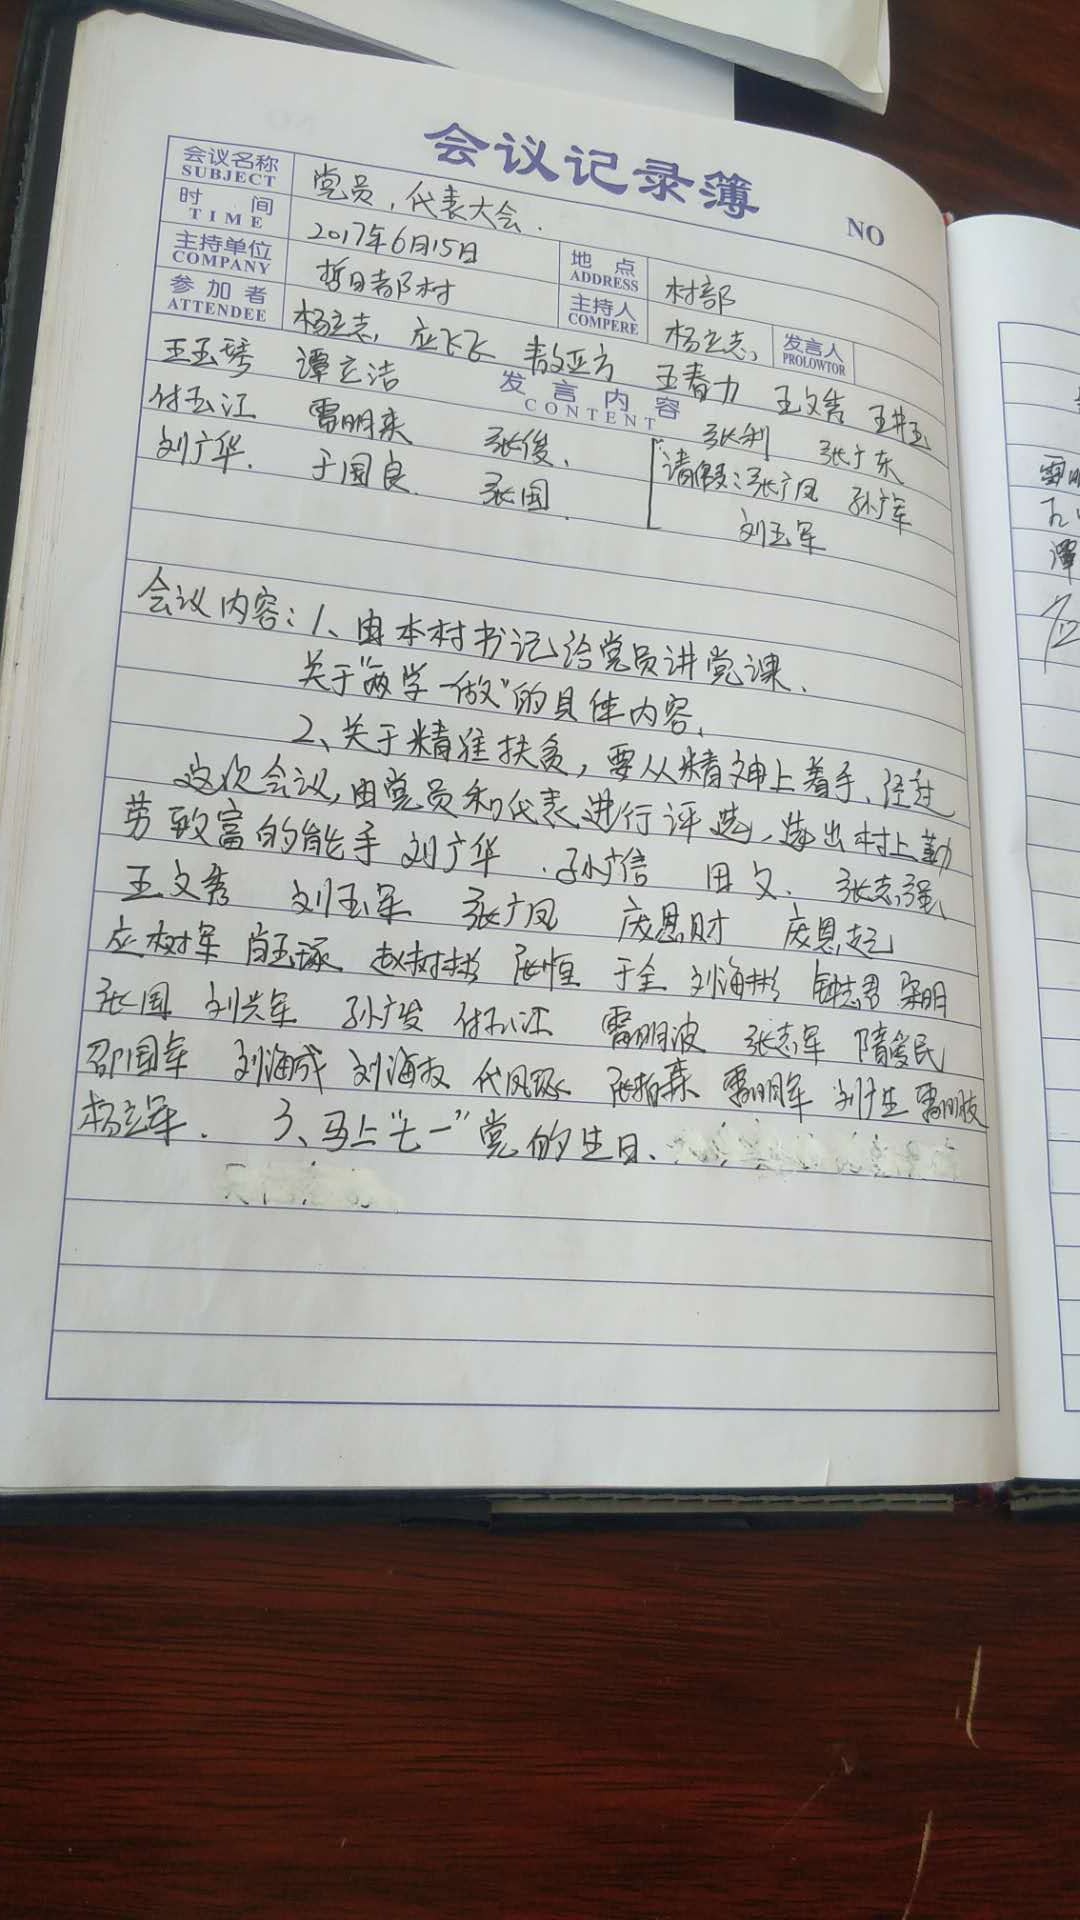 会议记录簿
NO
会议名称 党员,代表大会.
SUBJECT
时间 2017年6月15日
TIME
地点 村部
ADDRESS
主持单位 哲日郝村
COMPANY
主持人 杨立志,
COMPERE
发言人
PROLOWTOR
参加者 杨立志, 应飞飞 敖亚方 王春力 王文秀 王井玉
ATTENDEE
发言内容
CONTENT
王玉琴 谭立洁 张利 张广东
付玉江 雷明来 张俊、 请假:张广凤 孙广军
刘广华. 于国良. 张国. 刘玉军
会议内容:1、由本村书记给党员讲党课、
关于“两学一做”的具体内容,
2、关于精准扶贫,要从精神上着手、经过
这次会议,由党员和代表进行评选、选出村上勤
劳致富的能手 刘广华 . 孙广信 田文. 张志强、
王文秀 刘玉军 张广凤 庞恩财 庞恩起
应树军 肖玉琢 赵树彬 张恒 于全 刘海彬 钟志君 梁明
张国 刘兴军 孙广发 付玉江 雷明波 张志军 隋爱民
邵国军 刘海成 刘海友 代凤琢 张柏森 雷明军 刘广生 雷明枝
杨立军. 3、马上“七一”党的生日、